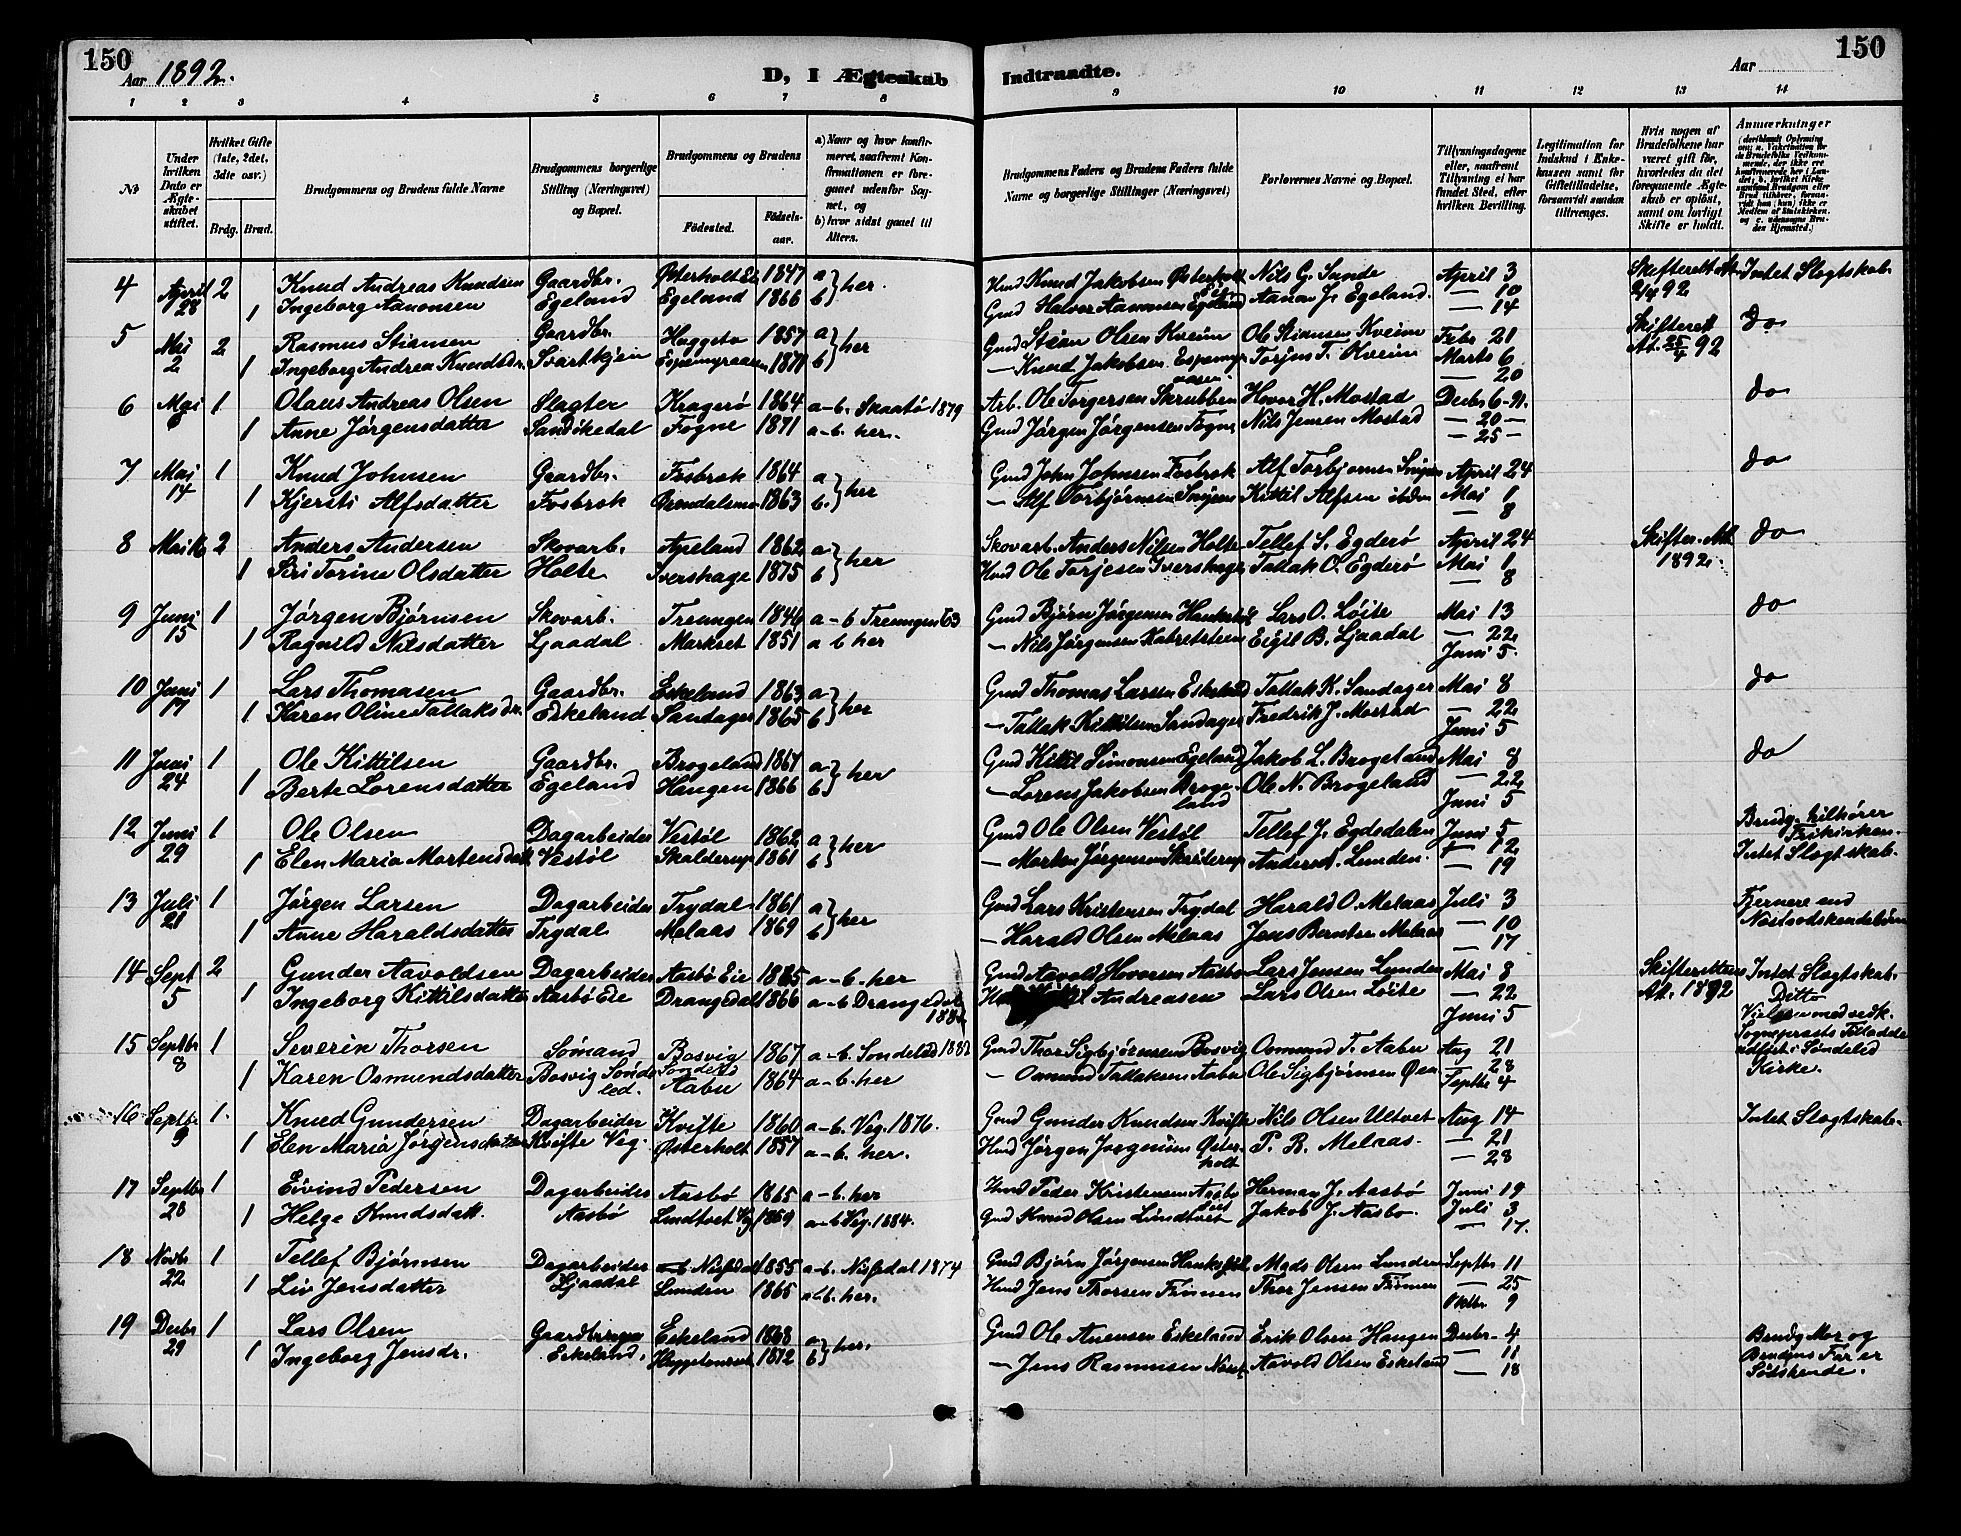 150
Aar 1892.
D, I Ægteskab
1 2 3 4 5 6 7 8
No
Under hvilken Dato er Ægteskabet stiftet.
Hvilket Gifte (1ste, 2det, 3die osv.)
Brdg. Brud.
Brudgommens og Brudens fulde Navne
Brudgommens borgerlige Stilling (Næringsvei) og Bopæl.
Brudgommens og Brudens
Fødested. Fødselsaar.
a) Naar og hvor konfirmeret, saafremt Konfirmationen er foregaaet udenfor Sognet, og
b) hvor sidst gaaet til Alters.
4 April 28 2 Knud Andreas Knudsen Gaardbr. Østerholt Eie 1847 a } her.
1 Ingeborg Aanonsen Egeland Egeland 1866 b
5 Mai 2 2 Rasmus Stiansen Gaardbr. 1857 a } her
1 Ingeborg Andrea Knudsdr. Svartkjen 1871 b
6 Mai 1 Olaus Andreas Olsen Slagter Kragerø 1864 a-b. Skaatø 1879
1 Anne Jørgensdatter Sandøkedal Fogne 1871 a-b. her.
7 Mai 14 1 Knud Johnsen Gaardbr. Fosbrok 1864 a } her
1 Kjersti Alfsdatter Fosbrok 1863 b.
8 Mai 2 Anders Andersen Skovarb. Apeland 1862 a } her
1 Siri Torine Olsdatter Holte Ivershage 1875 b
9 Juni 15 1 Jørgen Bjørnsen Skovarb. Treungen 1846 a-b Treungen 63
1 Ragnild Nilsdatter Ljaadal Markset 1851 a b her
10 Juni 17 1 Lars Thomasen Gaardbr. Eskeland 1863 a } her
1 Karen Oline Tallaksdr. Eskeland Sandager 1865 b
11 Juni 24 1 Ole Kittilsen Gaardbr. Brogeland 1867 a } her
1 Berte Lorensdatter Egeland Haugen 1866 b
12 Juni 29 1 Ole Olsen Dagarbeider Vestøl 1862 a } her
1 Elen Maria Mortensdatt. Vestøl Skalderup 1861 b
13 Juli 21 1 Jørgen Larsen Dagarbeider Trydal 1861 a } her
1 Anne Haraldsdatter Trydal Melaas 1869 b
14 Sept 5 2 Gunder Aavoldsen Dagarbeider Aasbø Eie a-b. her
1 Ingeborg Kittilsdatter Aasbø Eie Drangedal 1866 a-b Drangedal
15 Septbr 8 1 Severin Thorsen Sømand Bosvig 1867 a-b. Søndeled
1 Karen Osmundsdatter Bosvig Sønde led. Aabu 1864 a-b. her
16 Septbr 9 1. Knud Gundersen Dagarbeider Kvifte 1860 a-b. Veg. 1876.
1 Elen Maria Jørgensdatter Kvifte Veg. Østerholt 1857 a-b. her.
17 Septbr 28 1 Eivind Pedersen Dagarbeider Aasbø 1865 a-b. her
1 Helge Knudsdatt. Aasbø Lundtvet Veg 1869 a-b Veg. 1884.
18 Novbr 22 1 Tellef Bjørnsen Dagarbeider Nissedal 1855 a-b. Nissedal 1874
1 Liv Jensdatter Ljaadal Lunden 1865 a-b. her.
19 Decbr 29 1 Lars Olsen Gaardbruger Eskeland 1868 a } her.
1 Ingeborg Jensdr. Eskeland. 1872 b
Indtraadte.
Aar
150
9 10 11 12 13 14
Brudgommens Faders og Brudens Faders fulde Navne og borgerlige Stillinger (Næringsvei)
Forlovernes Navne og Bopæl.
Tillysningsdagene eller, saafremt Tillysning ei har fundet Sted, efter hvilken Bevilling.
Legitimation for Indskud i Enkekassen samt for Giftetilladelse, forsaavidt saadan tiltrænges.
Hvis nogen af Brudefolkene har været gift før, hvorledes da det foregaaende Ægteskab er opløst, samt om lovligt Skifte er holdt.
Anmærkninger
Hmd Knud Jakobsen Østerholt Eie Nils G. Sande April 3 Skifteret At. 92 Intet Slægtskab
Gmd Halvor Aanonsen Egeland Aanon J. Egeland. — 10
— 14
Gmd Stian Olsen Kveim Ole Stiansen Kveim Febr 21 Skifteret At. 25/4 92 do
— Knud Jakobsen Torjus T. Kveim Marts 6
— 20
Arb. Ole Torgersen Skrubben Hovor H. Mostad Decbr 6-91. do
Gmd Jørgen Jørgensen Fogne Nils Jensen Mostad — 20 —
— 25 —
Gmd John Johnsen Fosbrok Alf Torbjørnsen April 24 do
— Alf Torbjørnsen Kittil Alfsen ibdm Mai 1
— 8
Skovarb. Anders Nilsen Holte Tellef S. Egderø April 24 Skifter. At. 1892. do
Hmd Ole Torjesen Ivershage Tallak O. Egderø Mai 1
— 8
Gmd Bjørn Jørgensen Lars O. Løite Mai 13 do
— Nils Jørgensen Eigil B. Ljaadal — 22
Juni 5.
Gmd Thomas Larsen Eskeland Tallak K. Sandager Mai 8 do
— Tallak Kittilsen Sandager Fredrik J. Mostad — 22
Juni 5
Gmd Kittil Simonsen Egeland Jakob L. Brogeland Mai 8 do
— Lorens Jakobsen Brogeland Ole N. Brogeland — 22
Juni 5
Gmd Ole Olsen Vestøl Tellef J. Egdedalen Juni 5 Brudg. tilhører Frikirken.
— Morten Jørgensen Lunden. — 12 Intet Slægtskab.
— 19
Gmd Lars Kristensen Trydal Harald O. Melaas Juli 3 Fjernere end
— Harald Olsen Melaas Jens Berntsen Melaas — 10 Næstsødskendebørn
— 17
Gmd Aavold Hovorsen Aasbø Lars Jensen Lunden Mai 8 Skifterettens At. 1892 Intet Slægtskab.
Andreasen Lars Olsen Løite — 22 Ditto
Juni 5
Gmd Thor Sigbjørnsen Bosvig Osmund T. Aabu Aug 21 Vielsen med vedk. Sogneprests Tilladelse udført i Søndeled Kirke.
— Osmund Tallaksen Aabu Ole Sigbjørnsen — 28
Septbr 4
Gmd Gunder Knudsen Kvifte Nils Olsen Ultvet Aug 14 Intet Slægtskab.
Hmd Jørgen Jørgensen Østerholt P. R. Melaas. — 21
— 28
Hmd Peder Kristensen Aasbø Herman J. Aasbø Juni 19
Gmd Knud Olsen Lundtvet Jakob J. Aasbø. Juli 3
— 17.
Gmd Bjørn Jørgensen Mads Olsen Lunden Septbr 11
Hmd Jens Thorsen Finnen Thor Jensen Finnen — 25
Oktbr 9
Gmd Ole Anensen Eskeland Erik Olsen Haugen Decbr 4 Brudg Mor og Brudens Far er Sødskende.
— Jens Rasmussen Aavold Olsen Eskeland — 11
— 18